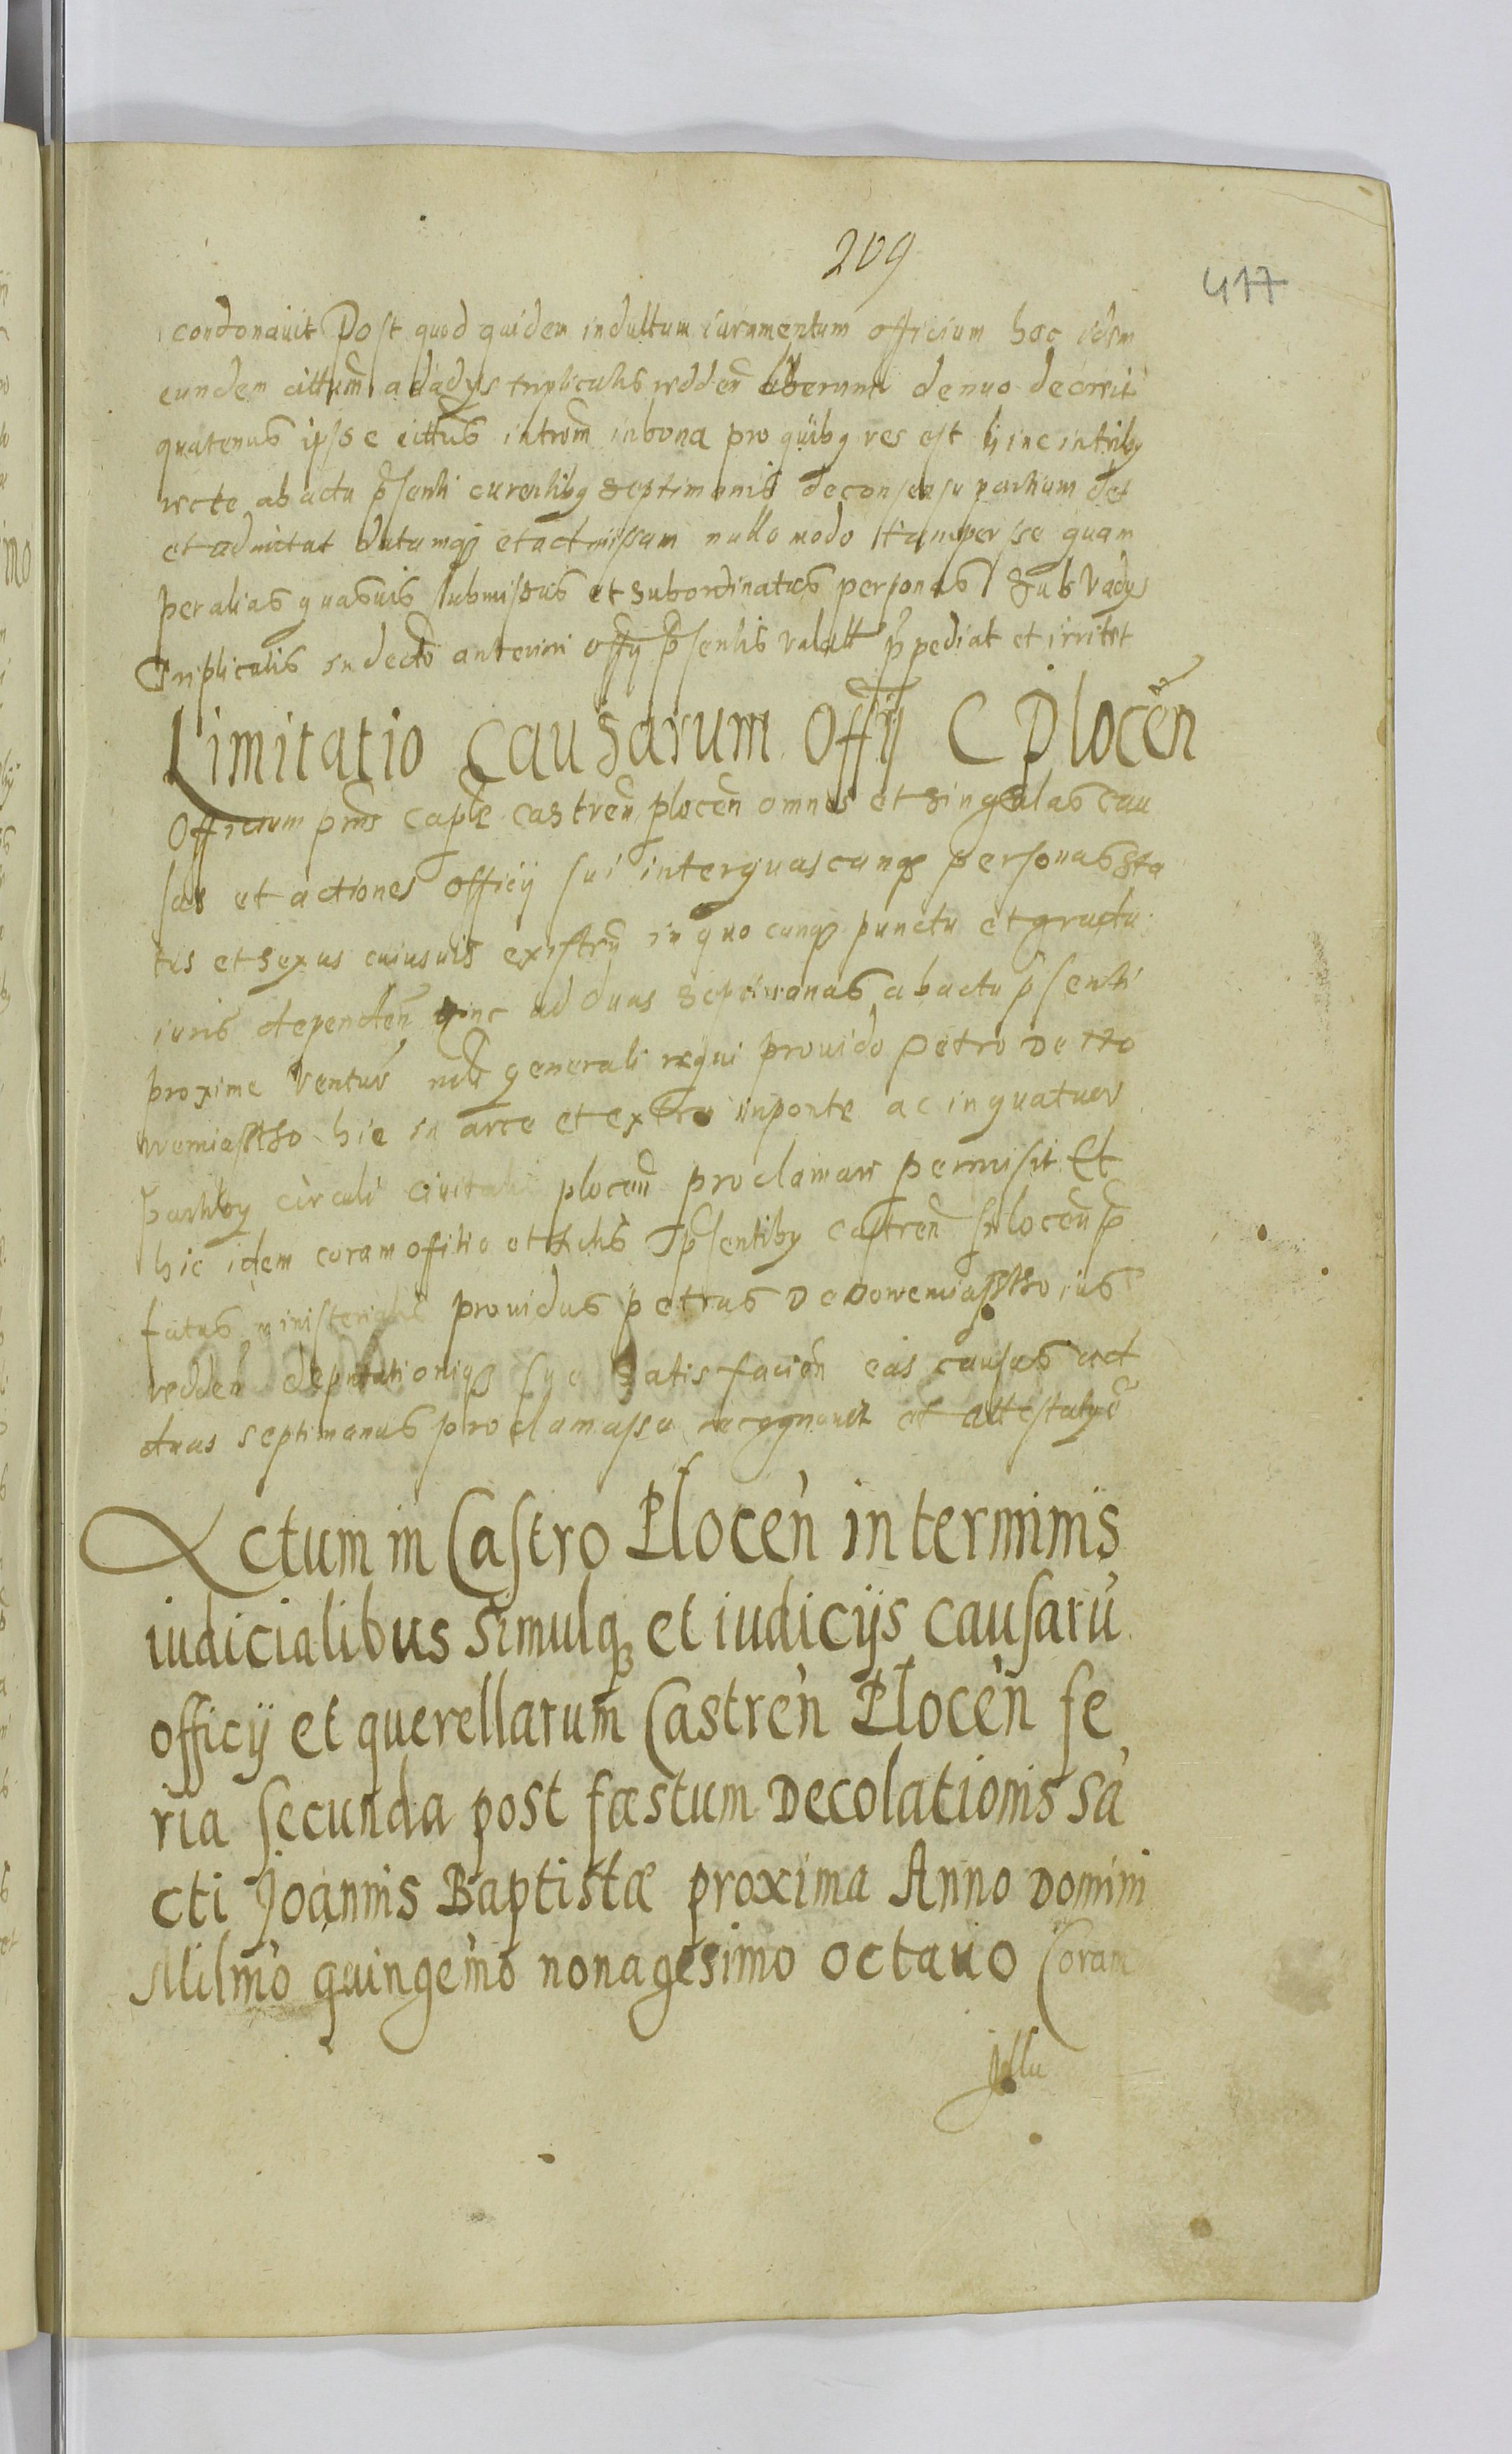 209
417
condonauit Post quod quidem indultum iuramentum officium hoc idem
eundem cittum a vadys triplicatis redden liberum denuo decreuit
quatenus ipse cittus introm in bona pro quibus res est hinc in tribus
recte ab actu psenti curentibus septimanis de consensu partium det
et admittat datamque et admissam nullo modo tam per se quam
per alias quasuis submissas et subordinatas personas sub vadys
Triplicatis in decto anteriori offy psentis valall ppediat et irritet
Limitatio causarum Offy C Plocen
Officium pns Caple Castren plocen omnes et singulas cau
sas et actiones officij sui inter quascunque personas sta
tus et sexus cuiusuis existen in quocunque punctu et gradu
iuris dependen hinc ad duas septimanas ab actu psenti
proxime ventur mli generali regni prouido Petro De No
wemiastho hic in arce et extra in ponte ac in quatuor
partibus circuli ciuitatis plocen proclamare permisit Et
hic idem coram ofitio et actis psentibus castren plocen p
fatus ministerialis prouidus petrus De Nowemiastho ius
redden deputationique sue satisfacien eas causas ad
duas septimanas proclamasse recognouit et attestatus e
Actum in Castro Plocen in terminis
iudicialibus simulque et iudicijs causaru
officij et querellarum Castren Plocen fe
ria secunda post fæstum Decolationis sa
cti Joannis Baptistæ proxima Anno Domini
Milmo quingemo nonagesimo octauo Coram
Illu